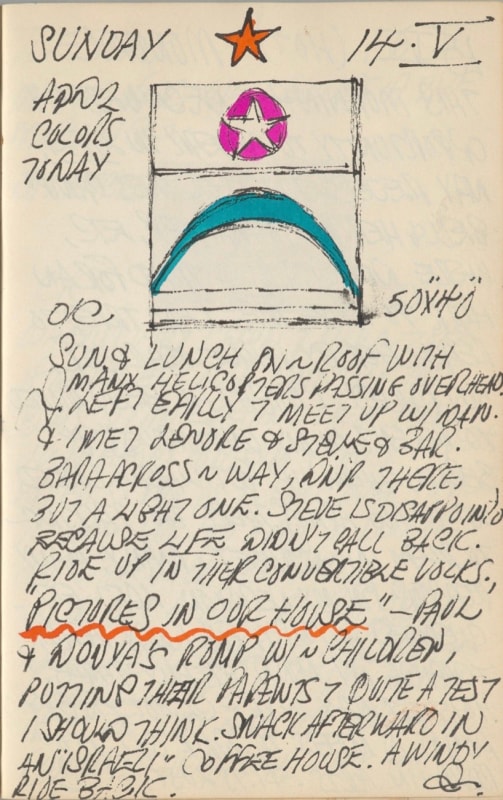 SUNDAY 14·V
ADD 2
COLORS
TODAY
O/C 50"X40"
SUN & LUNCH ON ~ ROOF WITH
MANY HELICOPTERS PASSING OVERHEAD.
LEFT EARLY T MEET UP W/
& I MET LENORE & STEVE & BAR.
BARA ACROSS ~ WAY, DINR THERE,
BUT A LIGHT ONE. STEVE IS DISAPPOINTD
BECAUSE LIFE DIDN'T CALL BACK.
RIDE UP IN THEIR CONVERTIBLE VOLKS,
"PICTURES IN OUR HOUSE" — PAUL
& ROMP W/ ~ CHILDREN,
PUTTING THEIR PARENTS T QUITE A TEST
I SHOULD THINK. SNACK AFTERWARD IN
AN "ISRAELI" COFFEE HOUSE. A WINDY
RIDE BACK.